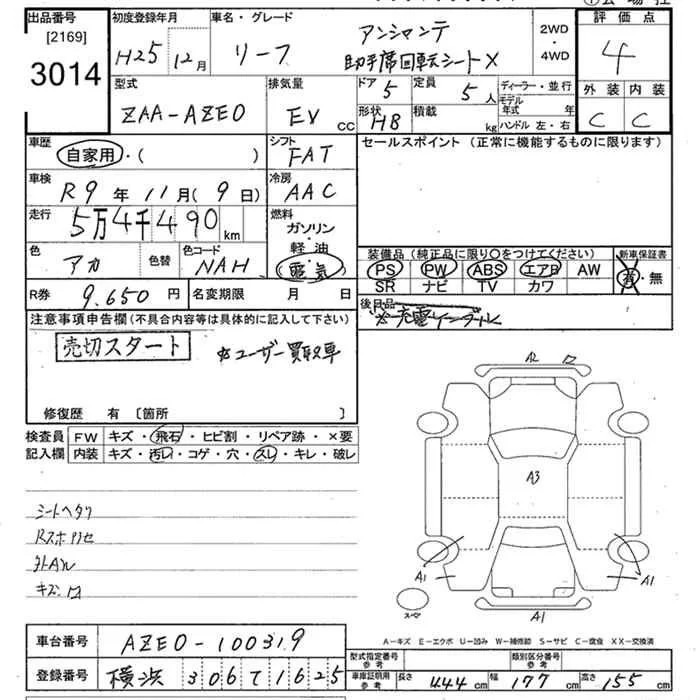 出品番号 初度登録年月 車名・グレード 評価点
[2169] H25年 12月 リーフ アンシャンテ 2WD・4WD 4
3014 助手席回転シート×
型式 排気量 ドア 定員 ディーラー・並行 外装 内装
ZAA-AZE0 EV CC 5 5人 モデル年式 年 C C
形状 積載 ハンドル 左・右
HB kg
車歴 シフト セールスポイント (正常に機能するものに限ります)
自家用・( ) FAT
車検 冷房
R9年 11月( 9日) AAC
走行 燃料
5万4千490 km ガソリン・軽油・電気
色 色替 色コード 装備品 (純正品に限り○をつけてください) 新車保証書
アカ NAH PS PW ABS エアB AW 有・無
SR ナビ TV カワ
R券 9.650円 名変期限 月 日 後日品
注意事項申告欄 (不具合内容等は具体的に記入して下さい)
売切スタート ※ユーザー買取車
修復歴 有 〔箇所 〕
検査員 FW キズ・飛石・ヒビ割・リペア跡・×要
記入欄 内装 キズ・汚レ・コゲ・穴・スレ・キレ・破レ
シートヘタリ
A3
A1 A1
A1
A-キズ E-エクボ U-凹み W-補修跡 S-サビ C-腐食 XX-交換済
車台番号 AZE0-100319
型式指定番号 参考 類別区分番号 参考
登録番号 横浜 306 て 1625
車庫証明用 参考 長さ 444cm 幅 177cm 高さ 155cm